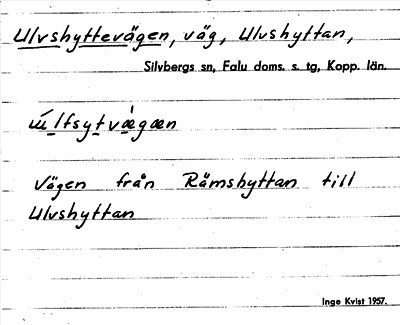 Ulvshyttevägen, väg, Ulvshyttan,
Silvbergs sn, Falu doms. s. tg, Kopp. län.
ẃlfsytvǽgæn
Vägen från Rämshyttan till
Ulvshyttan
Inge Kvist 1957.